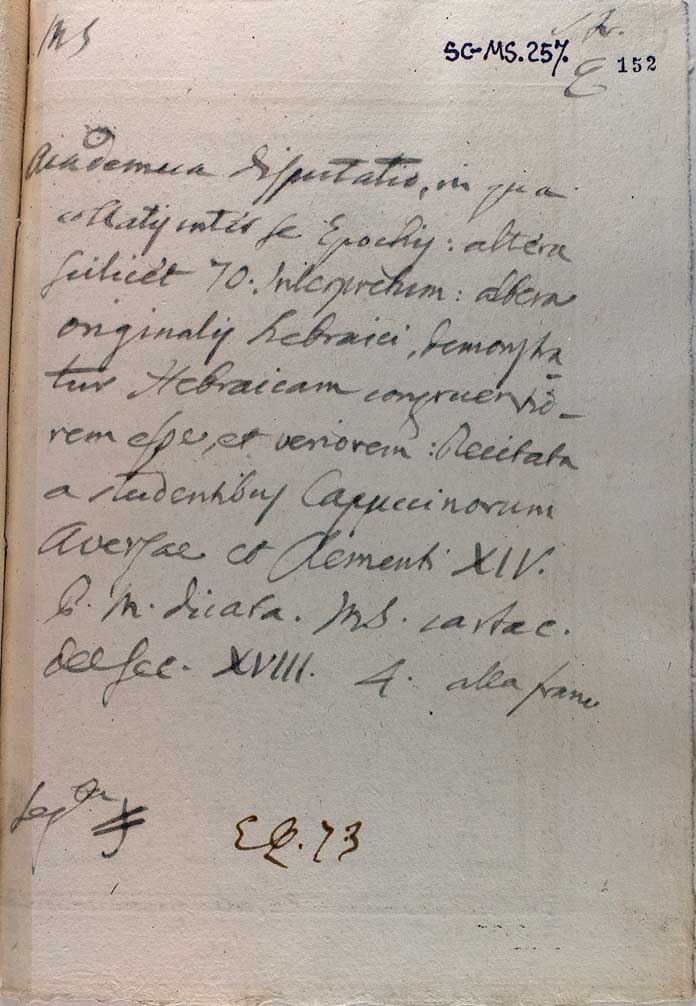 MS
SG-MS.257.
152
Academica disputatio, in qua
collatis inter se Epochis: altera
scilicet 70. Interpretum: altera
originalis hebraici, demonstra-
tur Hebraicam congruentio-
rem esse, et veriorem: Recitata
a studentibus Cappuccinorum
Aversae et Clementi XIV.
P. M. dicata. MS. cartac.
del sec. XVIII. 4. alla franc
EQ. 73